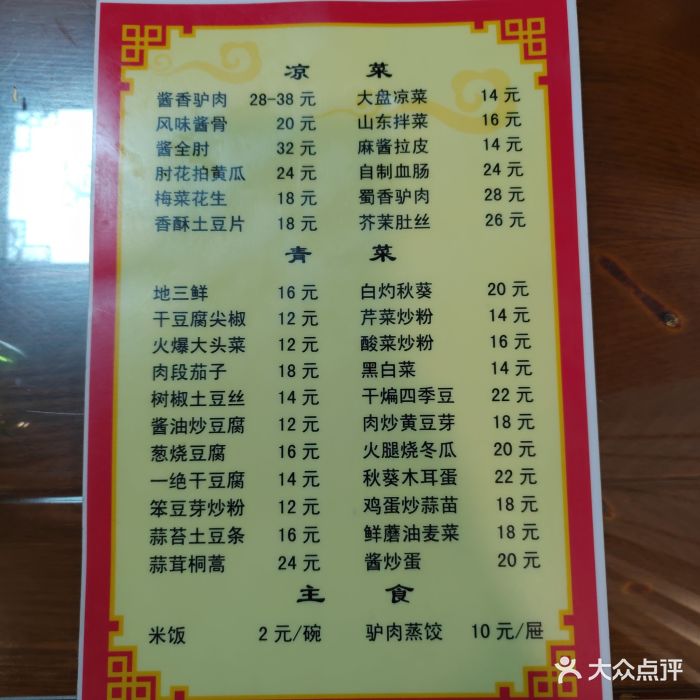 凉 菜
酱香驴肉 28-38 元 大盘凉菜 14 元
风味酱骨 20 元 山东拌菜 16 元
酱全肘 32 元 麻酱拉皮 14 元
肘花拍黄瓜 24 元 自制血肠 24 元
梅菜花生 18 元 蜀香驴肉 28 元
香酥土豆片 18 元 芥茉肚丝 26 元
青 菜
地三鲜 16 元 白灼秋葵 20 元
干豆腐尖椒 12 元 芹菜炒粉 14 元
火爆大头菜 12 元 酸菜炒粉 16 元
肉段茄子 18 元 黑白菜 14 元
树椒土豆丝 14 元 干煸四季豆 22 元
酱油炒豆腐 12 元 肉炒黄豆芽 18 元
葱烧豆腐 16 元 火腿烧冬瓜 20 元
一绝干豆腐 14 元 秋葵木耳蛋 22 元
笨豆芽炒粉 12 元 鸡蛋炒蒜苗 18 元
蒜苔土豆条 16 元 鲜蘑油麦菜 18 元
蒜茸桐蒿 24 元 酱炒蛋 20 元
主 食
米饭 2 元/碗 驴肉蒸饺 10 元/屉
大众点评